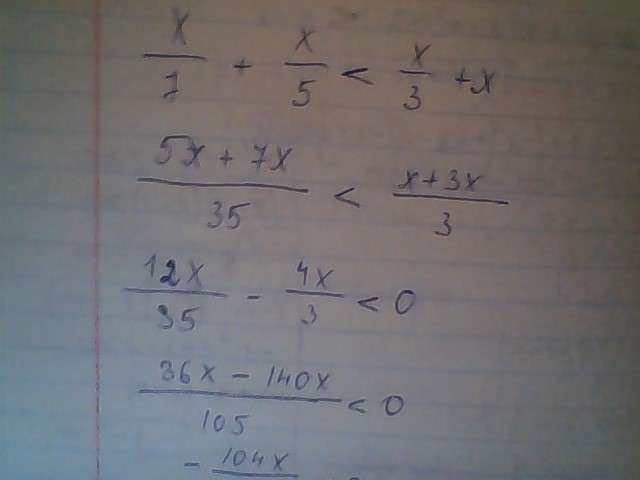 x/7 + x/5 < x/3 + x
5x + 7x/35 < x + 3x/3
12x/35 - 4x/3 < 0
36x - 140x/105 < 0
- 104x